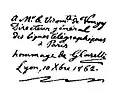 a Mr le Vicomte de Vougy
Directeur général
des lignes télégraphiques
à Paris
hommage de G Caselli
Lyon, 10 xbre 1862.